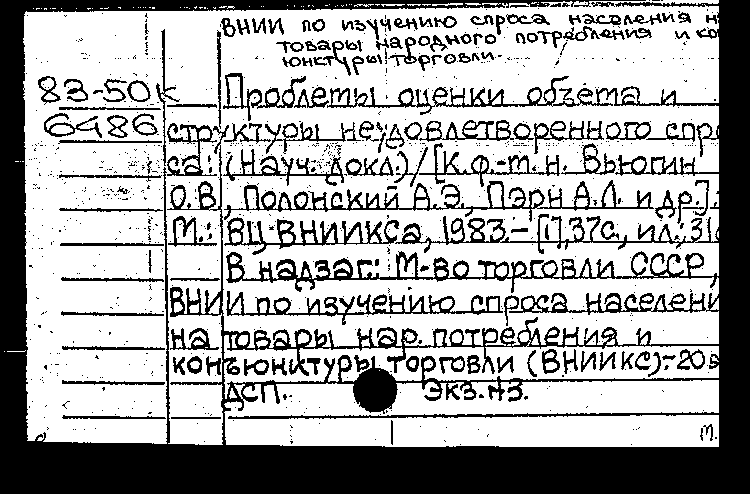 ВНИИ по изучению спроса населения н
товары народного потребления и ко
юнктуры торговли.
83-50к Проблемы оценки объема и
6486 структуры неудовлетворенного спро
са: (Науч. докл.)/[К.ф.-м.н. Вьюгин
О.В., Полонский А.Э., Пэрн А.Л. и др.].
М.: ВЦ ВНИИКСа, 1983.- [1],37с., ил.; 31с
В надзаг.: М-во торговли СССР,
ВНИИ по изучению спроса населени
на товары нар. потребления и
конъюнктуры торговли (ВНИИКС).-20
ДСП. Экз.№3.
М.